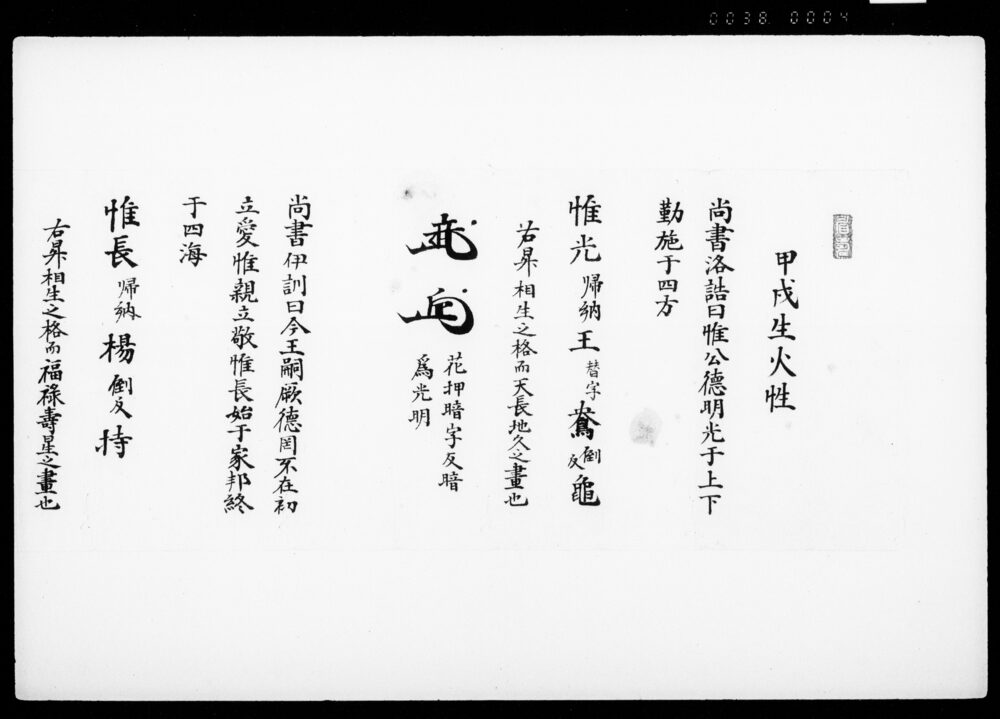 0038 0004
甲戌生火性
尚書洛誥曰惟公德明光于上下
勤施于四方
惟光 歸納 王 替字 鴦 倒反 龜
右昇相生之格而天長地久之畫也
花押暗字反暗
爲光明
尚書伊訓曰今王嗣厥德罔不在初
立愛惟親立敬惟長始于家邦終
于四海
惟長 歸納 楊 倒反 持
右昇相生之格而福祿壽星之畫也